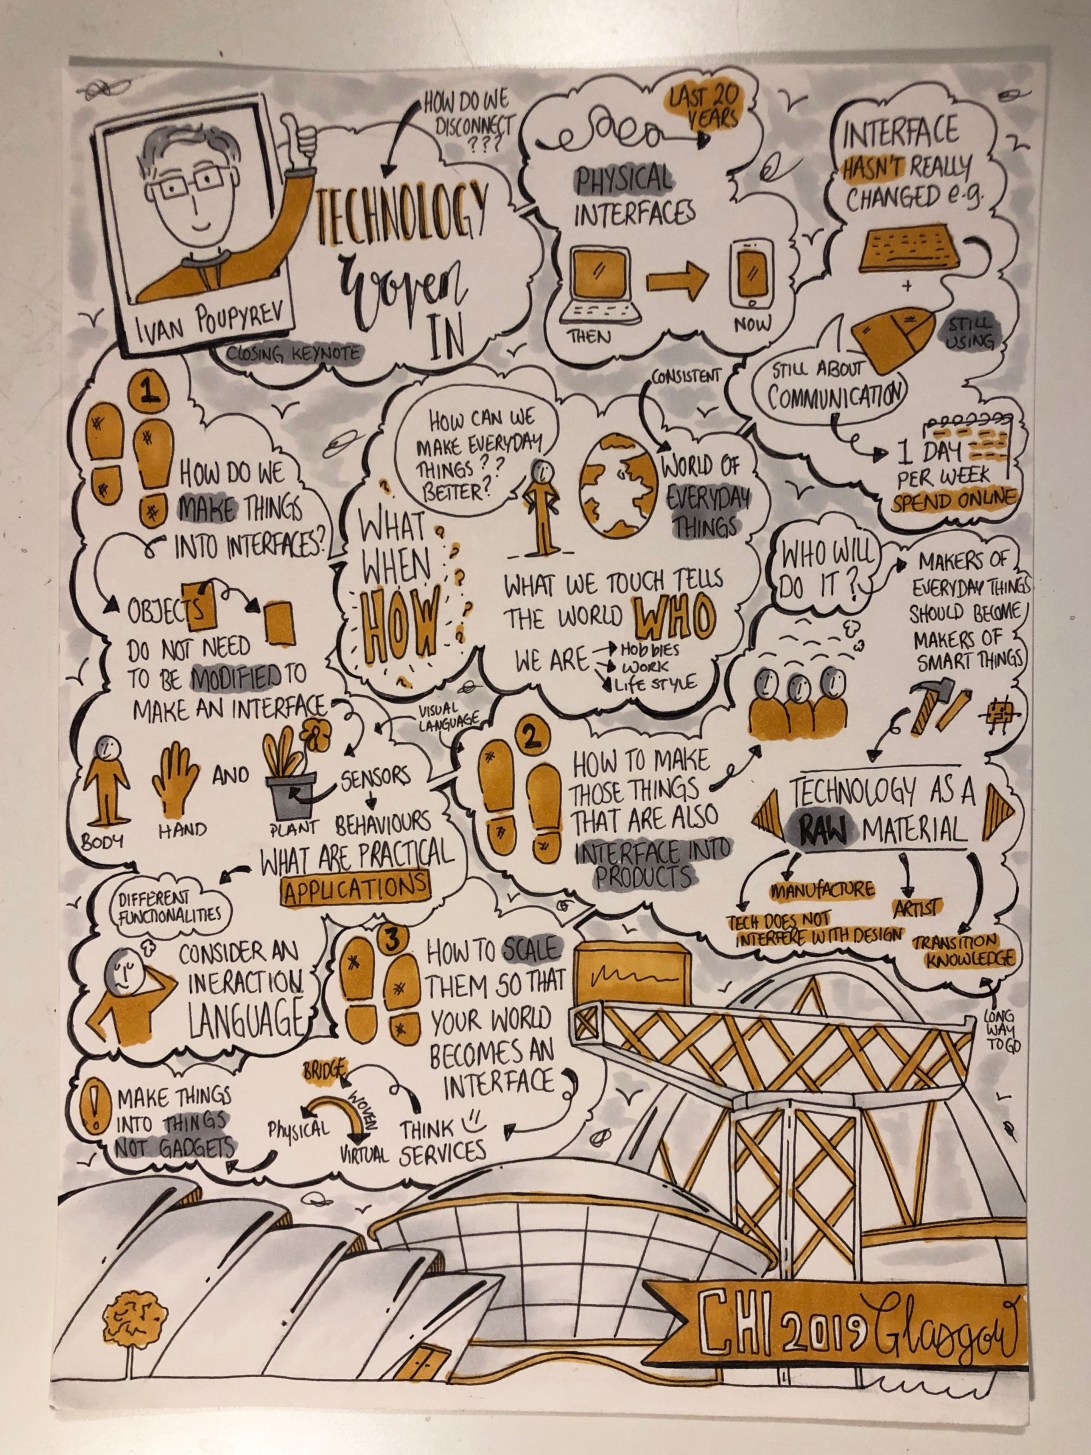 IVAN POUPYREV
CLOSING KEYNOTE
HOW DO WE
DISCONNECT
???
TECHNOLOGY
Woven
IN
LAST 20
YEARS
PHYSICAL
INTERFACES
THEN
NOW
INTERFACE
HASN'T REALLY
CHANGED e.g.
+
STILL
USING
STILL ABOUT
COMMUNICATION
1 DAY
PER WEEK
SPEND ONLINE
1
HOW DO WE
MAKE THINGS
INTO INTERFACES?
OBJECTS
DO NOT NEED
TO BE MODIFIED TO
MAKE AN INTERFACE
BODY
HAND
AND
PLANT
SENSORS
BEHAVIOURS
WHAT ARE PRACTICAL
APPLICATIONS
VISUAL
LANGUAGE
DIFFERENT
FUNCTIONALITIES
CONSIDER AN
INERACTION
LANGUAGE
HOW CAN WE
MAKE EVERYDAY
THINGS??
BETTER?
WHAT
WHEN
HOW
? ? ? ? ? ?
CONSISTENT
WORLD OF
EVERYDAY
THINGS
WHAT WE TOUCH TELLS
THE WORLD WHO
WE ARE
HOBBIES
WORK
LIFE STYLE
WHO WILL
DO IT?
MAKERS OF
EVERYDAY THINGS
SHOULD BECOME
MAKERS OF
SMART THINGS
2
HOW TO MAKE
THOSE THINGS
THAT ARE ALSO
INTERFACE INTO
PRODUCTS
TECHNOLOGY AS A
RAW MATERIAL
MANUFACTURE
TECH DOES NOT
INTERFERE WITH DESIGN
ARTIST
TRANSITION
KNOWLEDGE
LONG
WAY
TO GO
3
HOW TO SCALE
THEM SO THAT
YOUR WORLD
BECOMES AN
INTERFACE
THINK
SERVICES
BRIDGE
WOVEN
PHYSICAL
VIRTUAL
!
MAKE THINGS
INTO THINGS
NOT GADGETS
CHI 2019 Glasgow